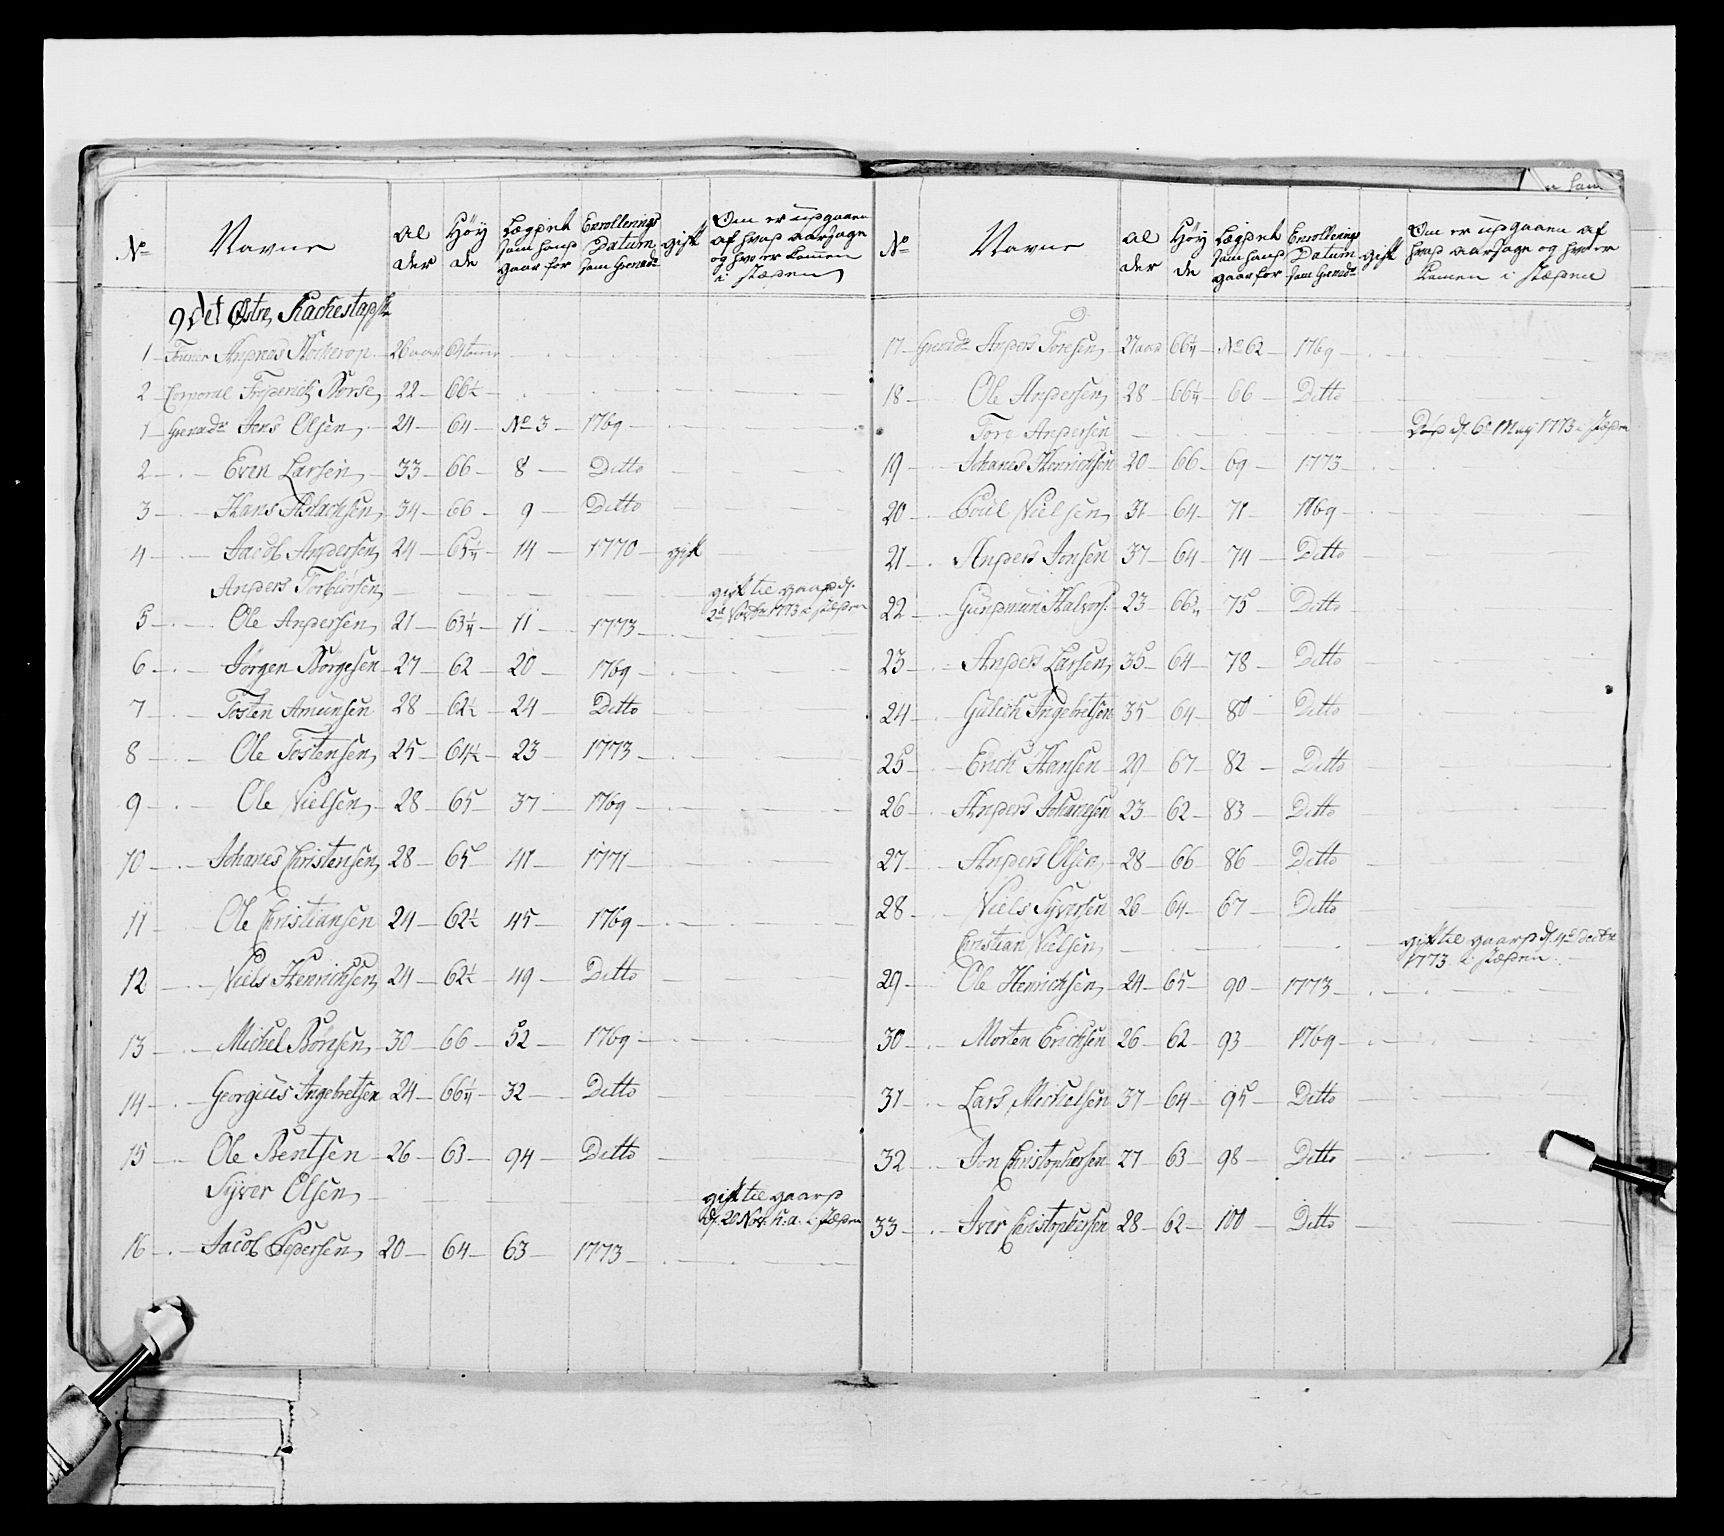 No Navne Al der Høy de Lægdet som hand gaar for Enrollerings Datum som Grenadr gift Om er udgaaen af hvad aarsage og hvo er komen i stæden
9 det Østre Rackestadske
1 Andreas 26 aar
2 Corporal Friderich 22 66½
1 Grenadr Jens Olsen 24 64 No 3 1769
2 Even Larsen 33 66 8 Ditto
3 Hans Aslachsen 34 66 9 Ditto
4 Jacob Andersen 24 65¼ 14 1770 gift
Anders Torbiørsen gik til gaard d. 2de Novbr 1773 i stæden
5 Ole Andersen 21 63¼ 11 1773
6 Jørgen Børgesen 27 62 20 1769
7 Tosten Amunsen 28 62½ 24 Ditto
8 Ole Tostensen 25 61½ 23 1773
9 Ole Nielsen 28 65 37 1769
10 Johanes Christensen 28 65 41 1771
11 Ole Christiansen 24 62½ 45 1769
12 Niels Henrichsen 24 62½ 49 Ditto
13 Michel Børesen 30 66 52 1769
14 Georgius Ingebretsen 24 66¼ 32 Ditto
15 Ole Bentsen 26 63 94 Ditto
Syver Olsen gik til gaard d. 20 Nov. h. a. i stæden
16 Jacob Pedersen 20 64 63 1773
No Navne Al der Høy de Lægdet som hand gaar for Enrollerings Datum som Grenadr gift Om er udgaaen af hvad aarsage og hvo er komen i stæden
17 Grenadr Anders Toresen 27 aar 66¼ No 62 1769
18 Ole Andersen 28 66¼ 66 Ditto
Tore Andersen Død d. 6te May 1773 i stæden
19 Johanes Henrichsen 20 66 69 1773
20 Poul Nielsen 31 64 71 1769
21 Anders Jonsen 37 64 74 Ditto
22 Gundmun Halvors. 23 66¼ 75 Ditto
23 Anders Larsen 35 64 78 Ditto
24 Gulich Ingebretsen 35 64 80 Ditto
25 Erich Hansen 29 67 82 Ditto
26 Anders Johansen 23 62 83 Ditto
27 Anders Olsen 28 66 86 Ditto
28 Niels Syversen 26 64 67 Ditto
Christian Nielsen gik til gaard d. 4de Decbr 1773 i stæden
29 Ole Henrichsen 24 65 90 1773
30 Morten Erichsen 26 62 93 1769
31 Lars Michelsen 37 64 95 Ditto
32 Jon Christophersen 27 63 98 Ditto
33 Iver Christophersen 28 62 100 Ditto